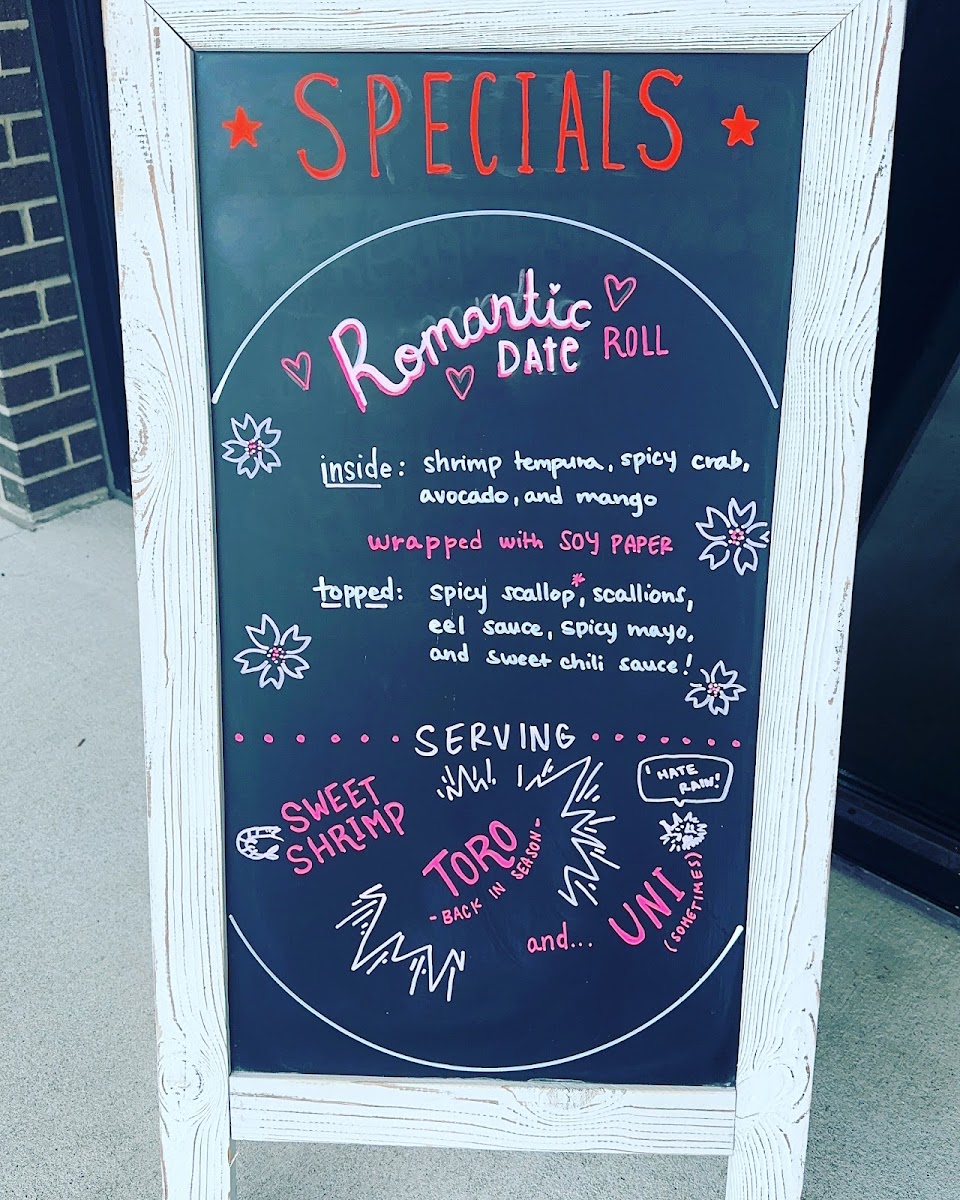 SPECIALS
Romantic
DATE ROLL
inside: shrimp tempura, spicy crab,
avocado, and mango
wrapped with SOY PAPER
topped: spicy scallop*, scallions,
eel sauce, spicy mayo,
and sweet chili sauce!
SERVING
SWEET
SHRIMP
TORO
-BACK IN SEASON-
and...
I HATE
RAIN!
UNI
(SOMETIMES)